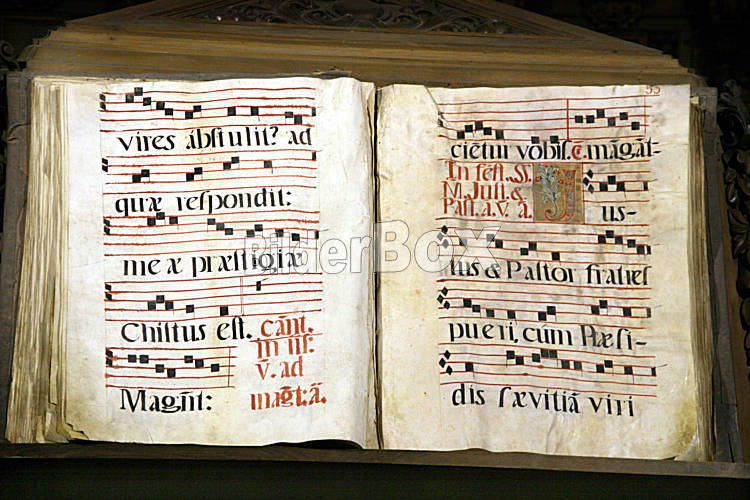 vires ábstulit? ad
quæ respondit:
meæ præstigiæ
Chistus est. Cánt.
In ii s.
V. ad
Magñt: magt: ã.
55
cietur vobis. C. mágãt-
In fest. SS.
M. Just. &
Past. a. V. ã. J us-
tus & Pastor fratres
pueri, cùm Præsi-
dis sævitiã viri
BilderBOX